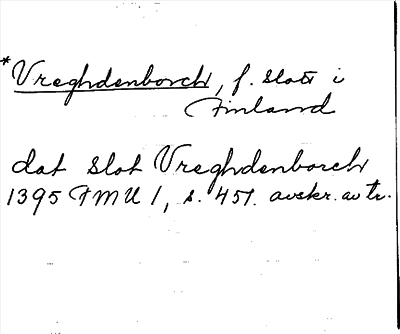 *Vreghdenborch, f. slott i
Finland
dat slot Vreghdenborch
1395 FMU 1, s. 451. avskr. av tr.